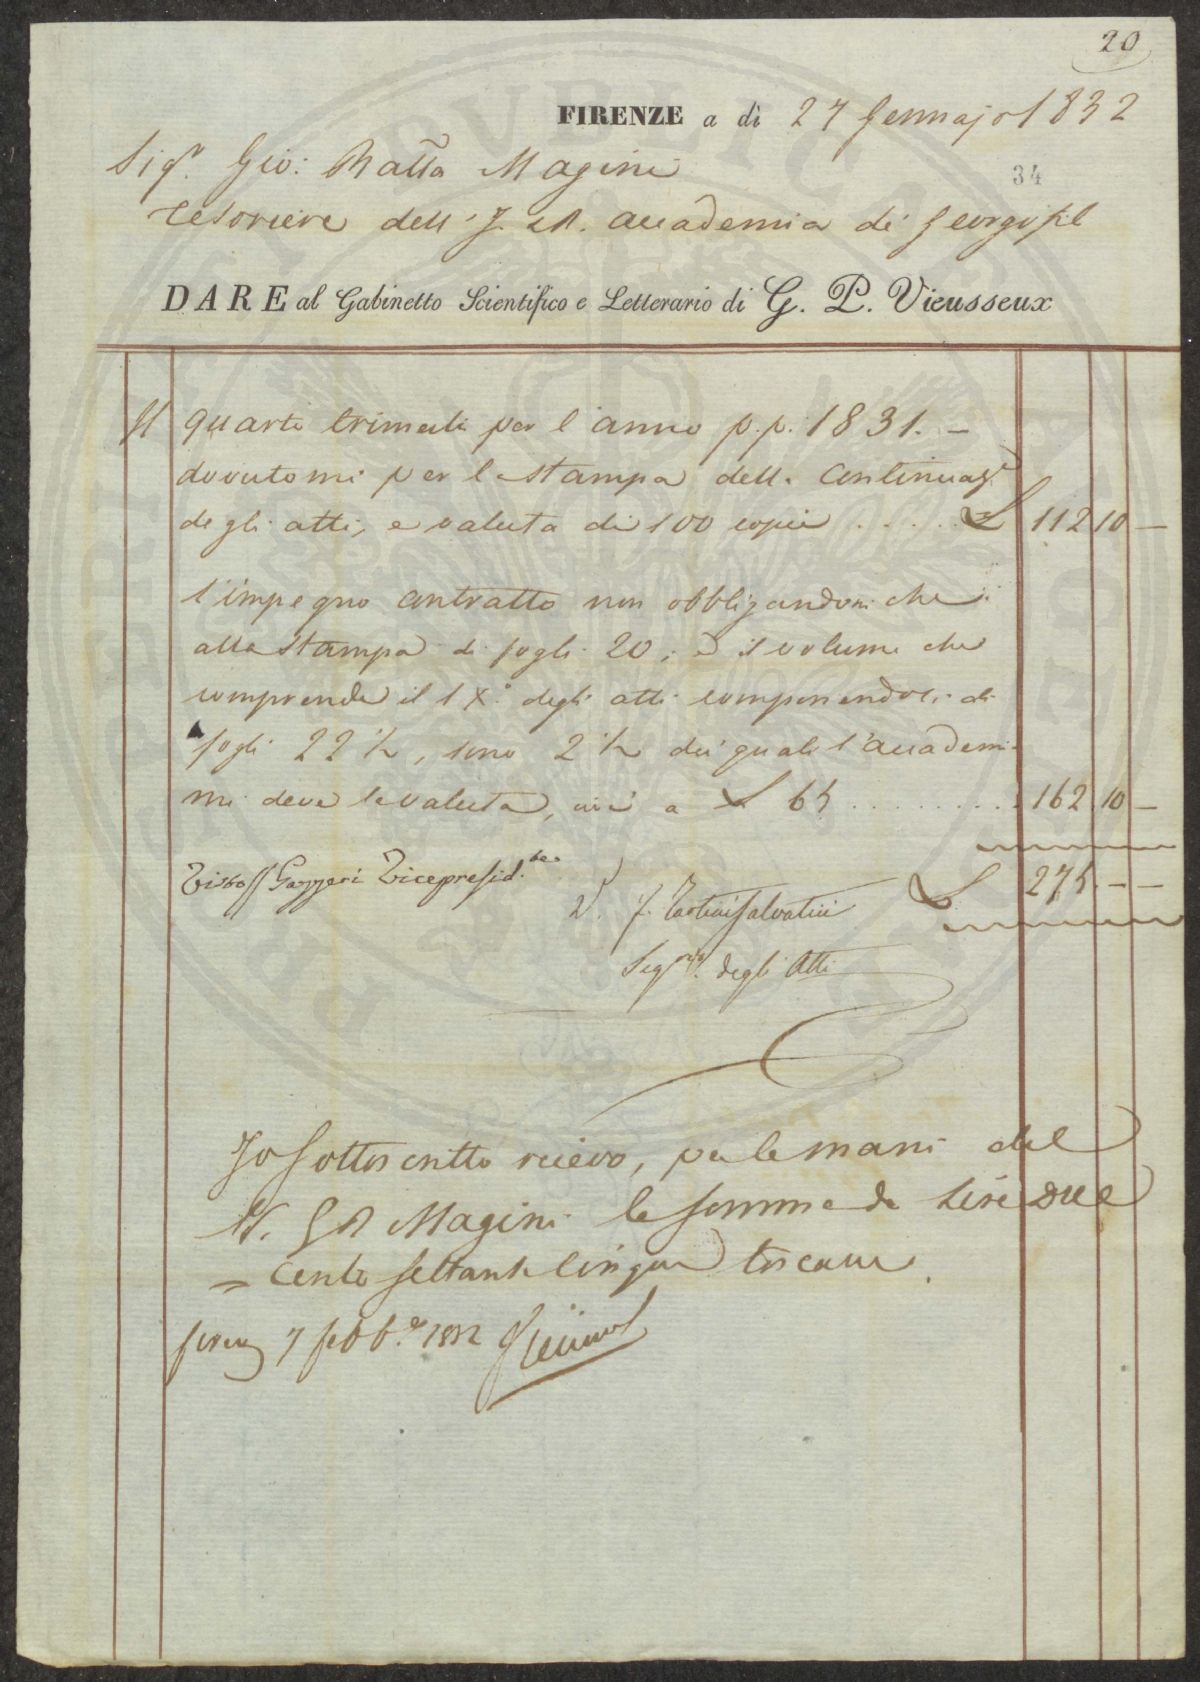 20
FIRENZE a dì 27 Gennajo 1832
Sigr. Gio: Batta Magini
34
Tesoriere dell' I. e R. Accademia de' Georgofili
DARE al Gabinetto Scientifico e Letterario di G. P. Vieusseux
Il quarto trimestre per l'anno p.p. 1831. —
dovutomi per la stampa della Continuaz.e
degli atti, e valuta di 100 copie . . . . . £ 112 10 —
l'impegno contratto non obbligandomi che
alla stampa di fogli 20, e il volume che
comprende il IX.° degli atti componendosi di
fogli 22 1/2, sono 2 1/2 dei quali l'Accademia
mi deve la valuta, cioè a £ 65 . . . . . . . . . 162 10 —
£ 275 — —
Visto Gazzeri Vicepresid.te
V. F. Tartini Salvatici
Seg.rio degli Atti
Io sottoscritto ricevo, per le mani del
S. GB Magini la somma di Lire due
= cento settanta cinque toscane.
firenz 7 febb.o 1832 Vieusseux